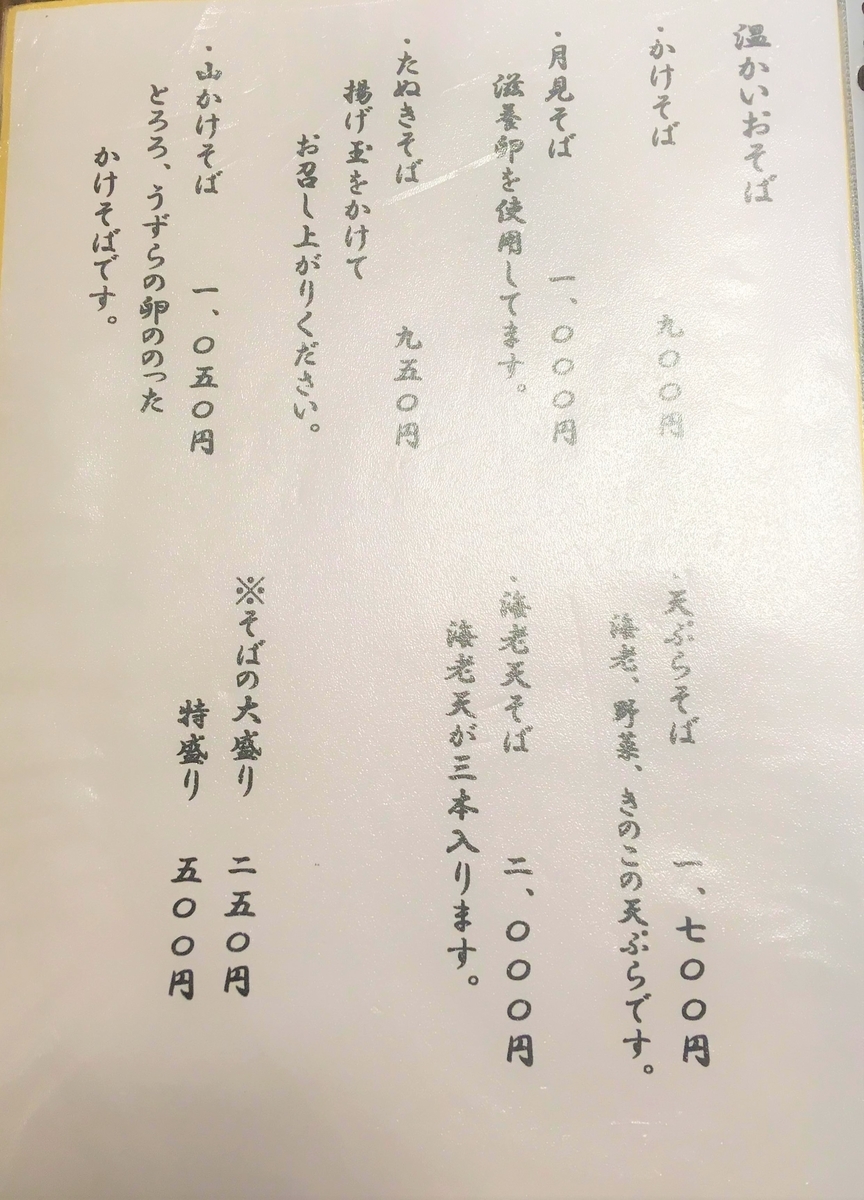 温かいおそば
・かけそば 九〇〇円
・月見そば 一、〇〇〇円
滋養卵を使用してます。
・たぬきそば 九五〇円
揚げ玉をかけて
お召し上がりください。
・山かけそば 一、〇五〇円
とろろ、うずらの卵ののった
かけそばです。
・天ぷらそば 一、七〇〇円
海老、野菜、きのこの天ぷらです。
・海老天そば 二、〇〇〇円
海老天が三本入ります。
※そばの大盛り 二五〇円
特盛り 五〇〇円